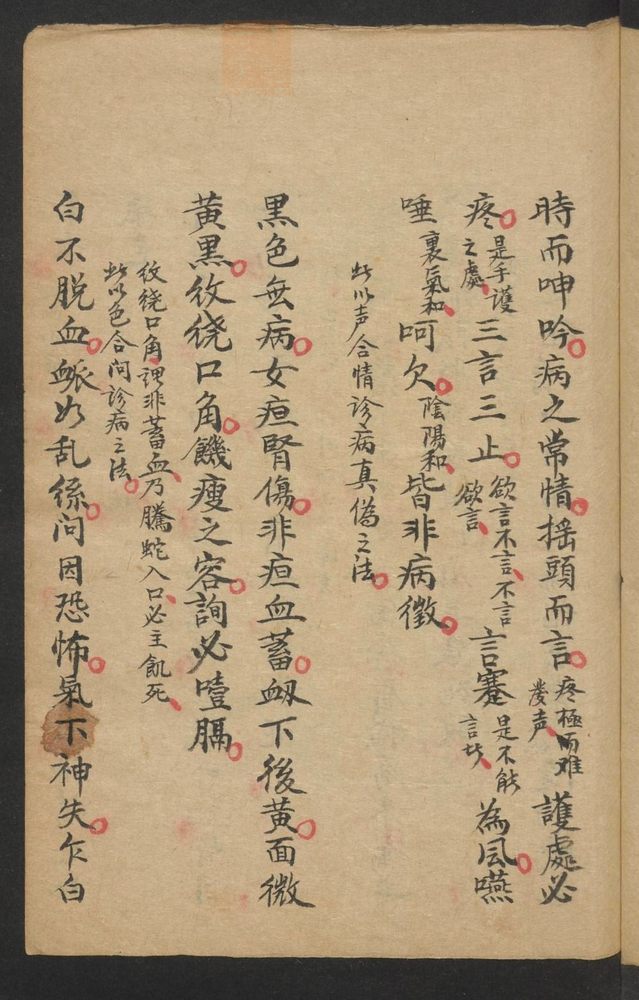 時而呻吟。病之常情。搖頭而言。疼極而难發声、護處必
疼。是手護之處、三言三止。欲言不言、不言欲言、言蹇是不能言、為風。嚥
唾裏氣和、呵欠。陰陽和、皆非病徵。
此以声合情診病真偽之法。
黑色無病。女疸腎傷。非疸血蓄。衂下後黃。面微
黃黑。紋繞口角。饑瘦之容。詢必噎膈。
紋繞口角、理非蓄血、乃騰蛇入口、必主飢死、
此以色合問診病之法。
白不脱血。脈如乱絲。問因恐怖。氣下神失。乍白